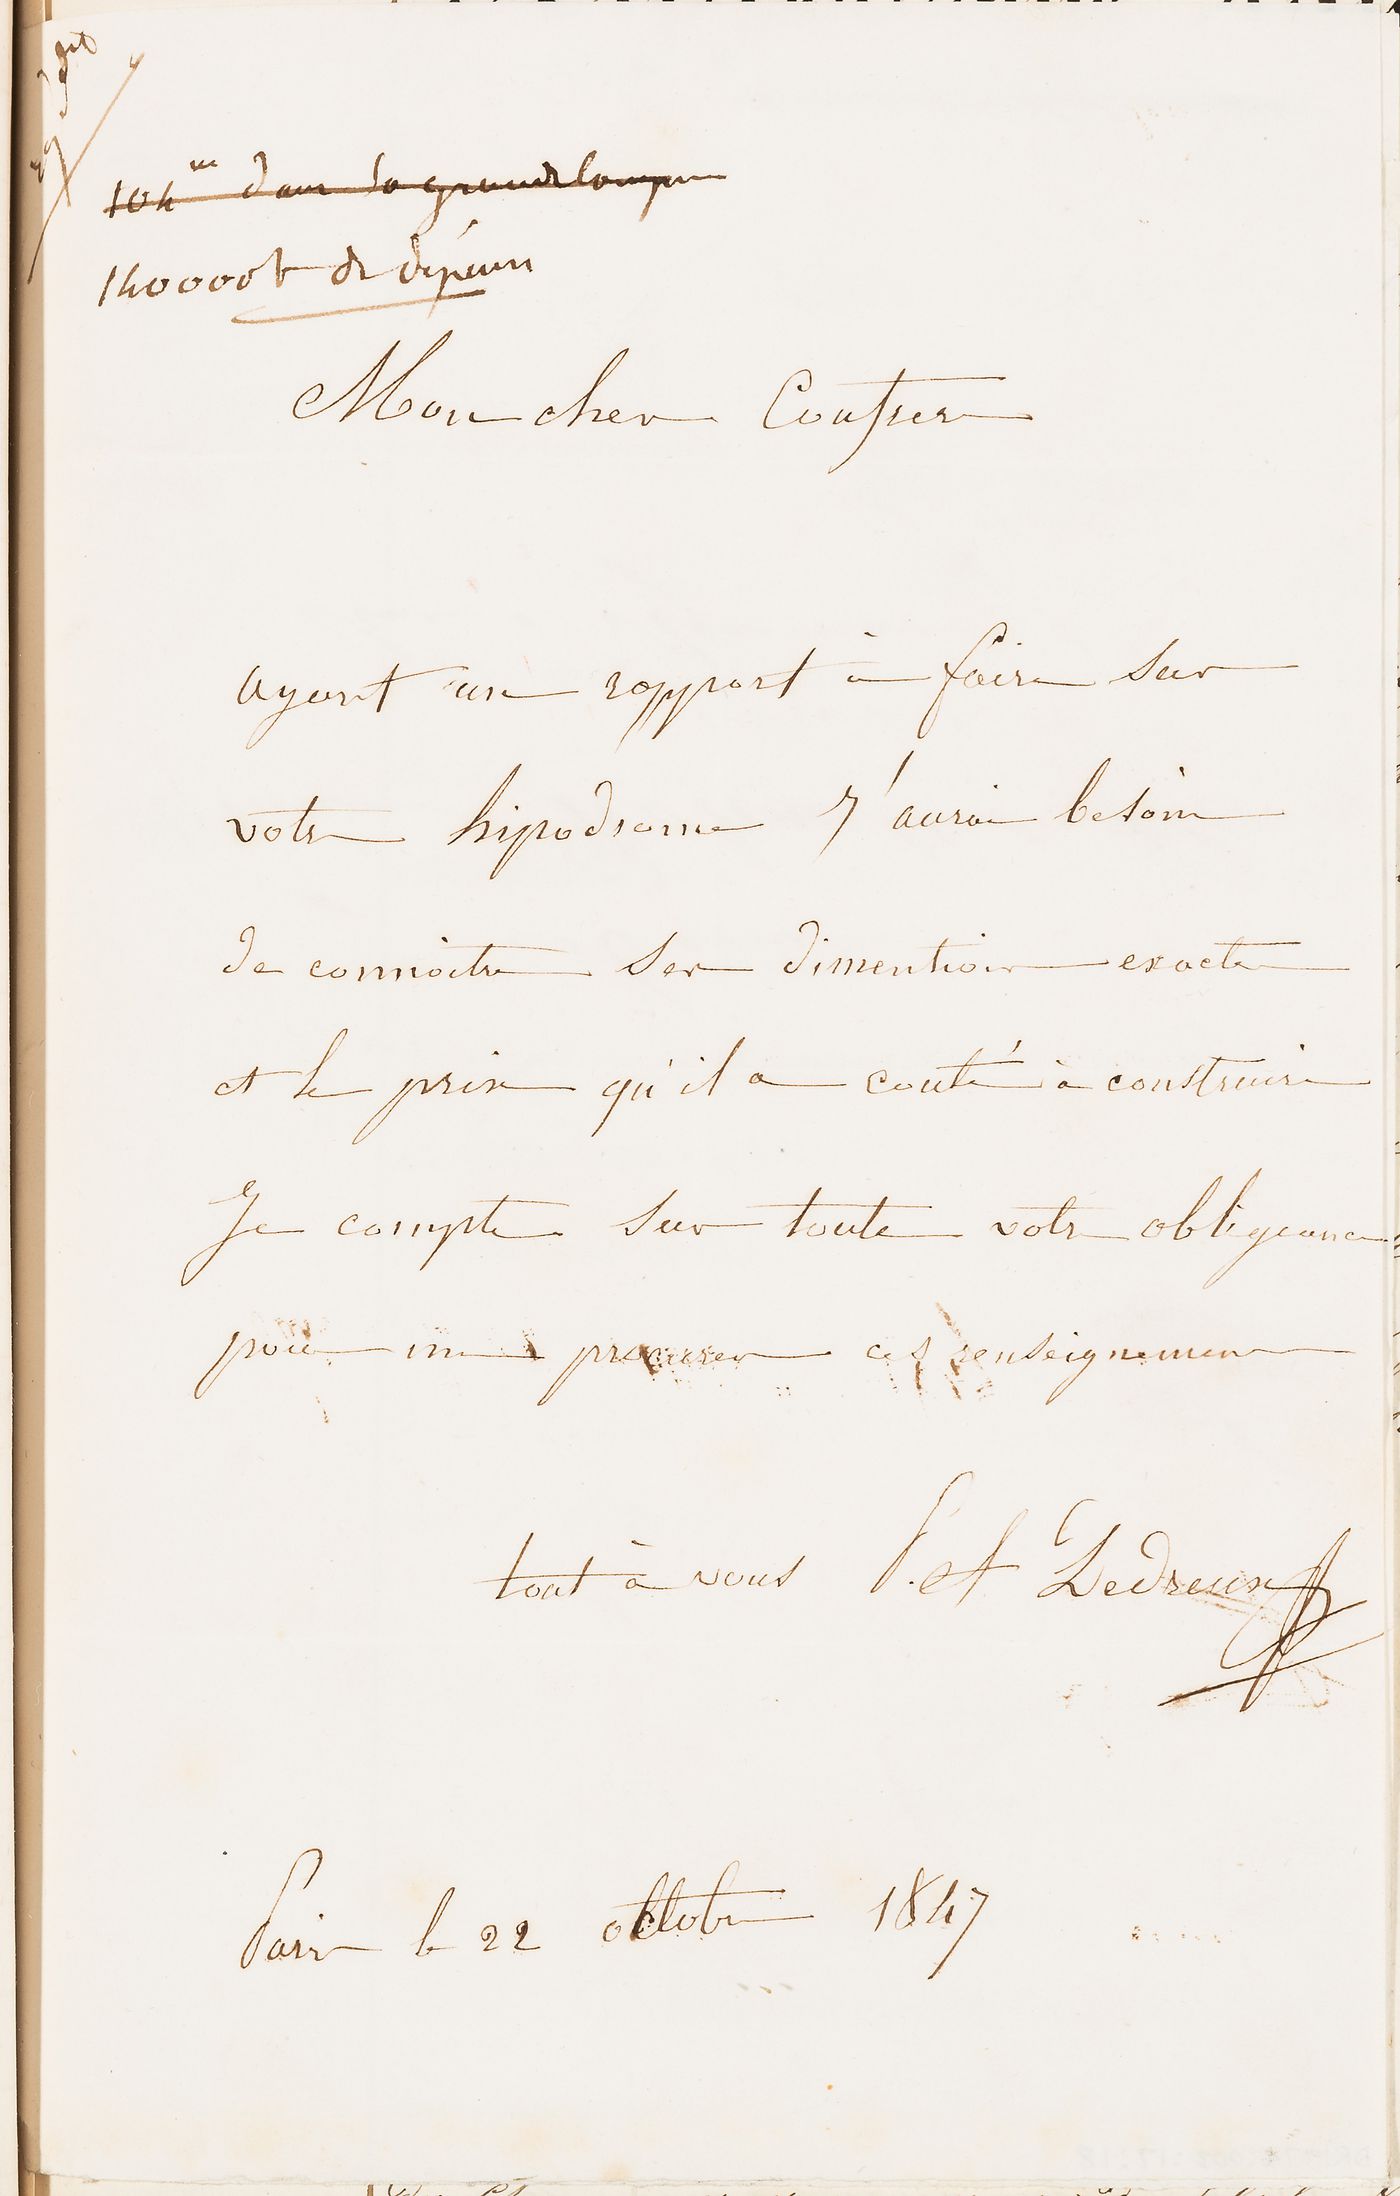 104m dans sa grande longueur
140000f de dépense
Mon cher Confrere
ayant un rapport à faire sur
votre hipodrome J'aurai besoin
de connoitre ses dimentions exacte
et le prix qu'il a couté à construire
Je compte sur toute votre obligeance
pour me procurer ces renseignemens
tout à vous P. A Ledreux
Paris le 22 octobre 1847